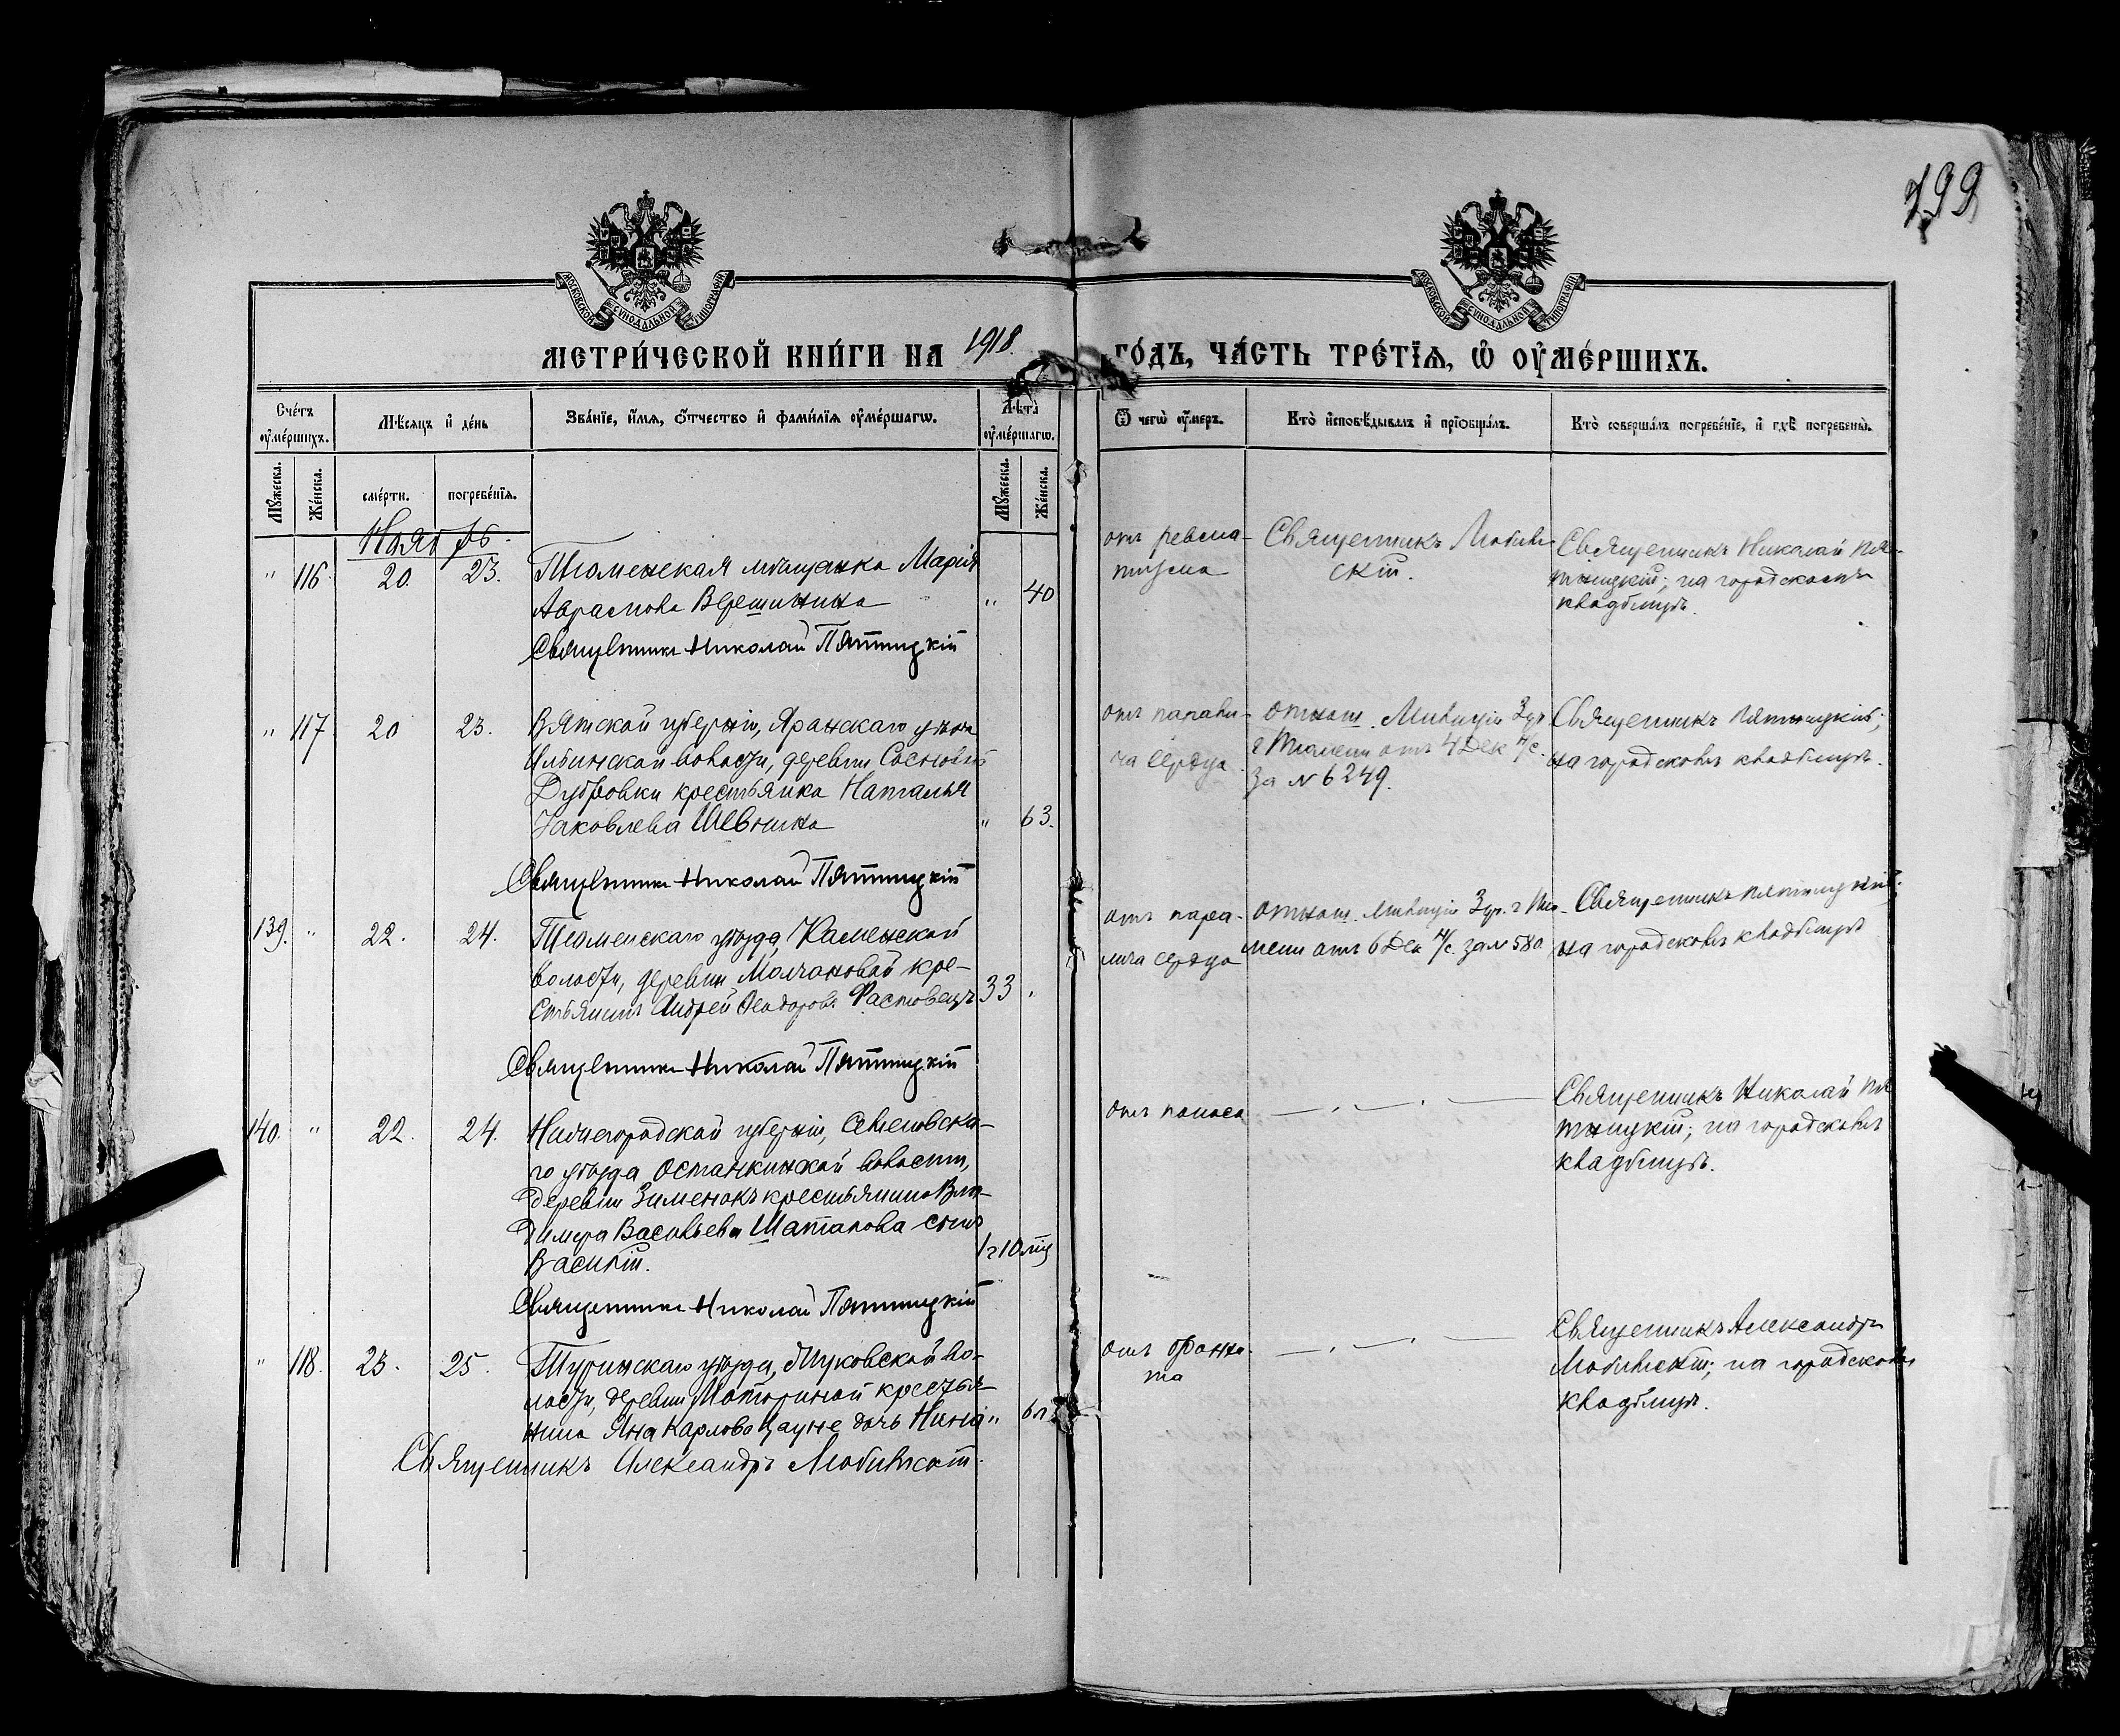 199
МОСКОВСКОЙ СѴНОДАЛЬНОЙ ТИПОГРАФІИ
МОСКОВСКОЙ СѴНОДАЛЬНОЙ ТИПОГРАФІИ
МЕТРИ́ЧЕСКОЙ КНИ́ГИ НА 1918. ГО́ДЪ, ЧА́СТЬ ТРЕ́ТІѦ, Ѡ҆ ОУ҆МЕ́РШИХЪ.
Сче́тъ оу҆ме́ршихъ.
Мѣ́сѧцъ и҆ де́нь
Зва́нїе, и҆́мѧ, ѻ҆́тчество и҆ фами́лїѧ оу҆ме́ршагѡ.
Лѣ́та оу҆ме́ршагѡ.
Ѿ чегѡ̀ оу҆́меръ.
Кто̀ и҆сповѣ́дывалъ и҆ прїѡбща́лъ.
Кто̀ соверша́лъ погребе́нїе, и҆ гдѣ̀ погребены̀.
Мꙋ́жеска.
Же́нска.
сме́рти.
погребе́нїѧ.
Мꙋ́жеска.
Же́нска.
Ноябрь
" 116. 20. 23. Тюменская мѣщанка Марія
Аврамова Верешинина " 40
Священникъ Николай Пятницкій
отъ ревма-
тизма
Священникъ Любин-
скій.
Священникъ Николай Пя-
тницкій; на городскомъ
кладбищѣ.
" 117. 20 23. Вятской губерніи, Яранскаго уѣзда
Ильинской волости, деревни Сосновый
Дубровки крестьянка Наталья
Іаковлева Шевнина " 63.
Священникъ Николай Пятницкій
отъ парали-
ча сердца
отнош. Милиціи 3 уч
г Тюмени отъ 4 Дек н/с.
За № 6249.
Священникъ Пятницкій;
на городскомъ кладбищѣ.
139. " 22. 24. Тюменскаго уѣзда, Каменской
волости, деревни Молчановой кре-
стьянинъ Андрей Ѳеодоровъ Фастовецъ 33 "
Священникъ Николай Пятницкій
отъ пара-
лича сердца
отнош. Милиціи 3 уч. г Тю-
мени отъ 6 Дек н/с. за № 580
Священникъ Пятницкій.
на городскомъ кладбищѣ
140. " 22. 24. Нижегородской губерніи, Семеновска-
го уѣзда Останкинской волости,
деревни Зименокъ крестьянина Вла-
димира Васильева Шаталова сынъ
Василій. 1 г 10 мѣс
Священникъ Николай Пятницкій
отъ поноса
— " — " —
Священникъ Николай Пя-
тницкій; на городскомъ
кладбищѣ.
" 118. 23. 25. Туринскаго уѣзда, Жуковской во-
лости, деревни Моториной крестья-
нина Яна Карлова Цауне дочь Нина " 6 л
Священникъ Александръ Любинскій.
отъ бронхи-
та
— " — " —
Священникъ Александръ
Любинскій; на городскомъ
кладбищѣ.